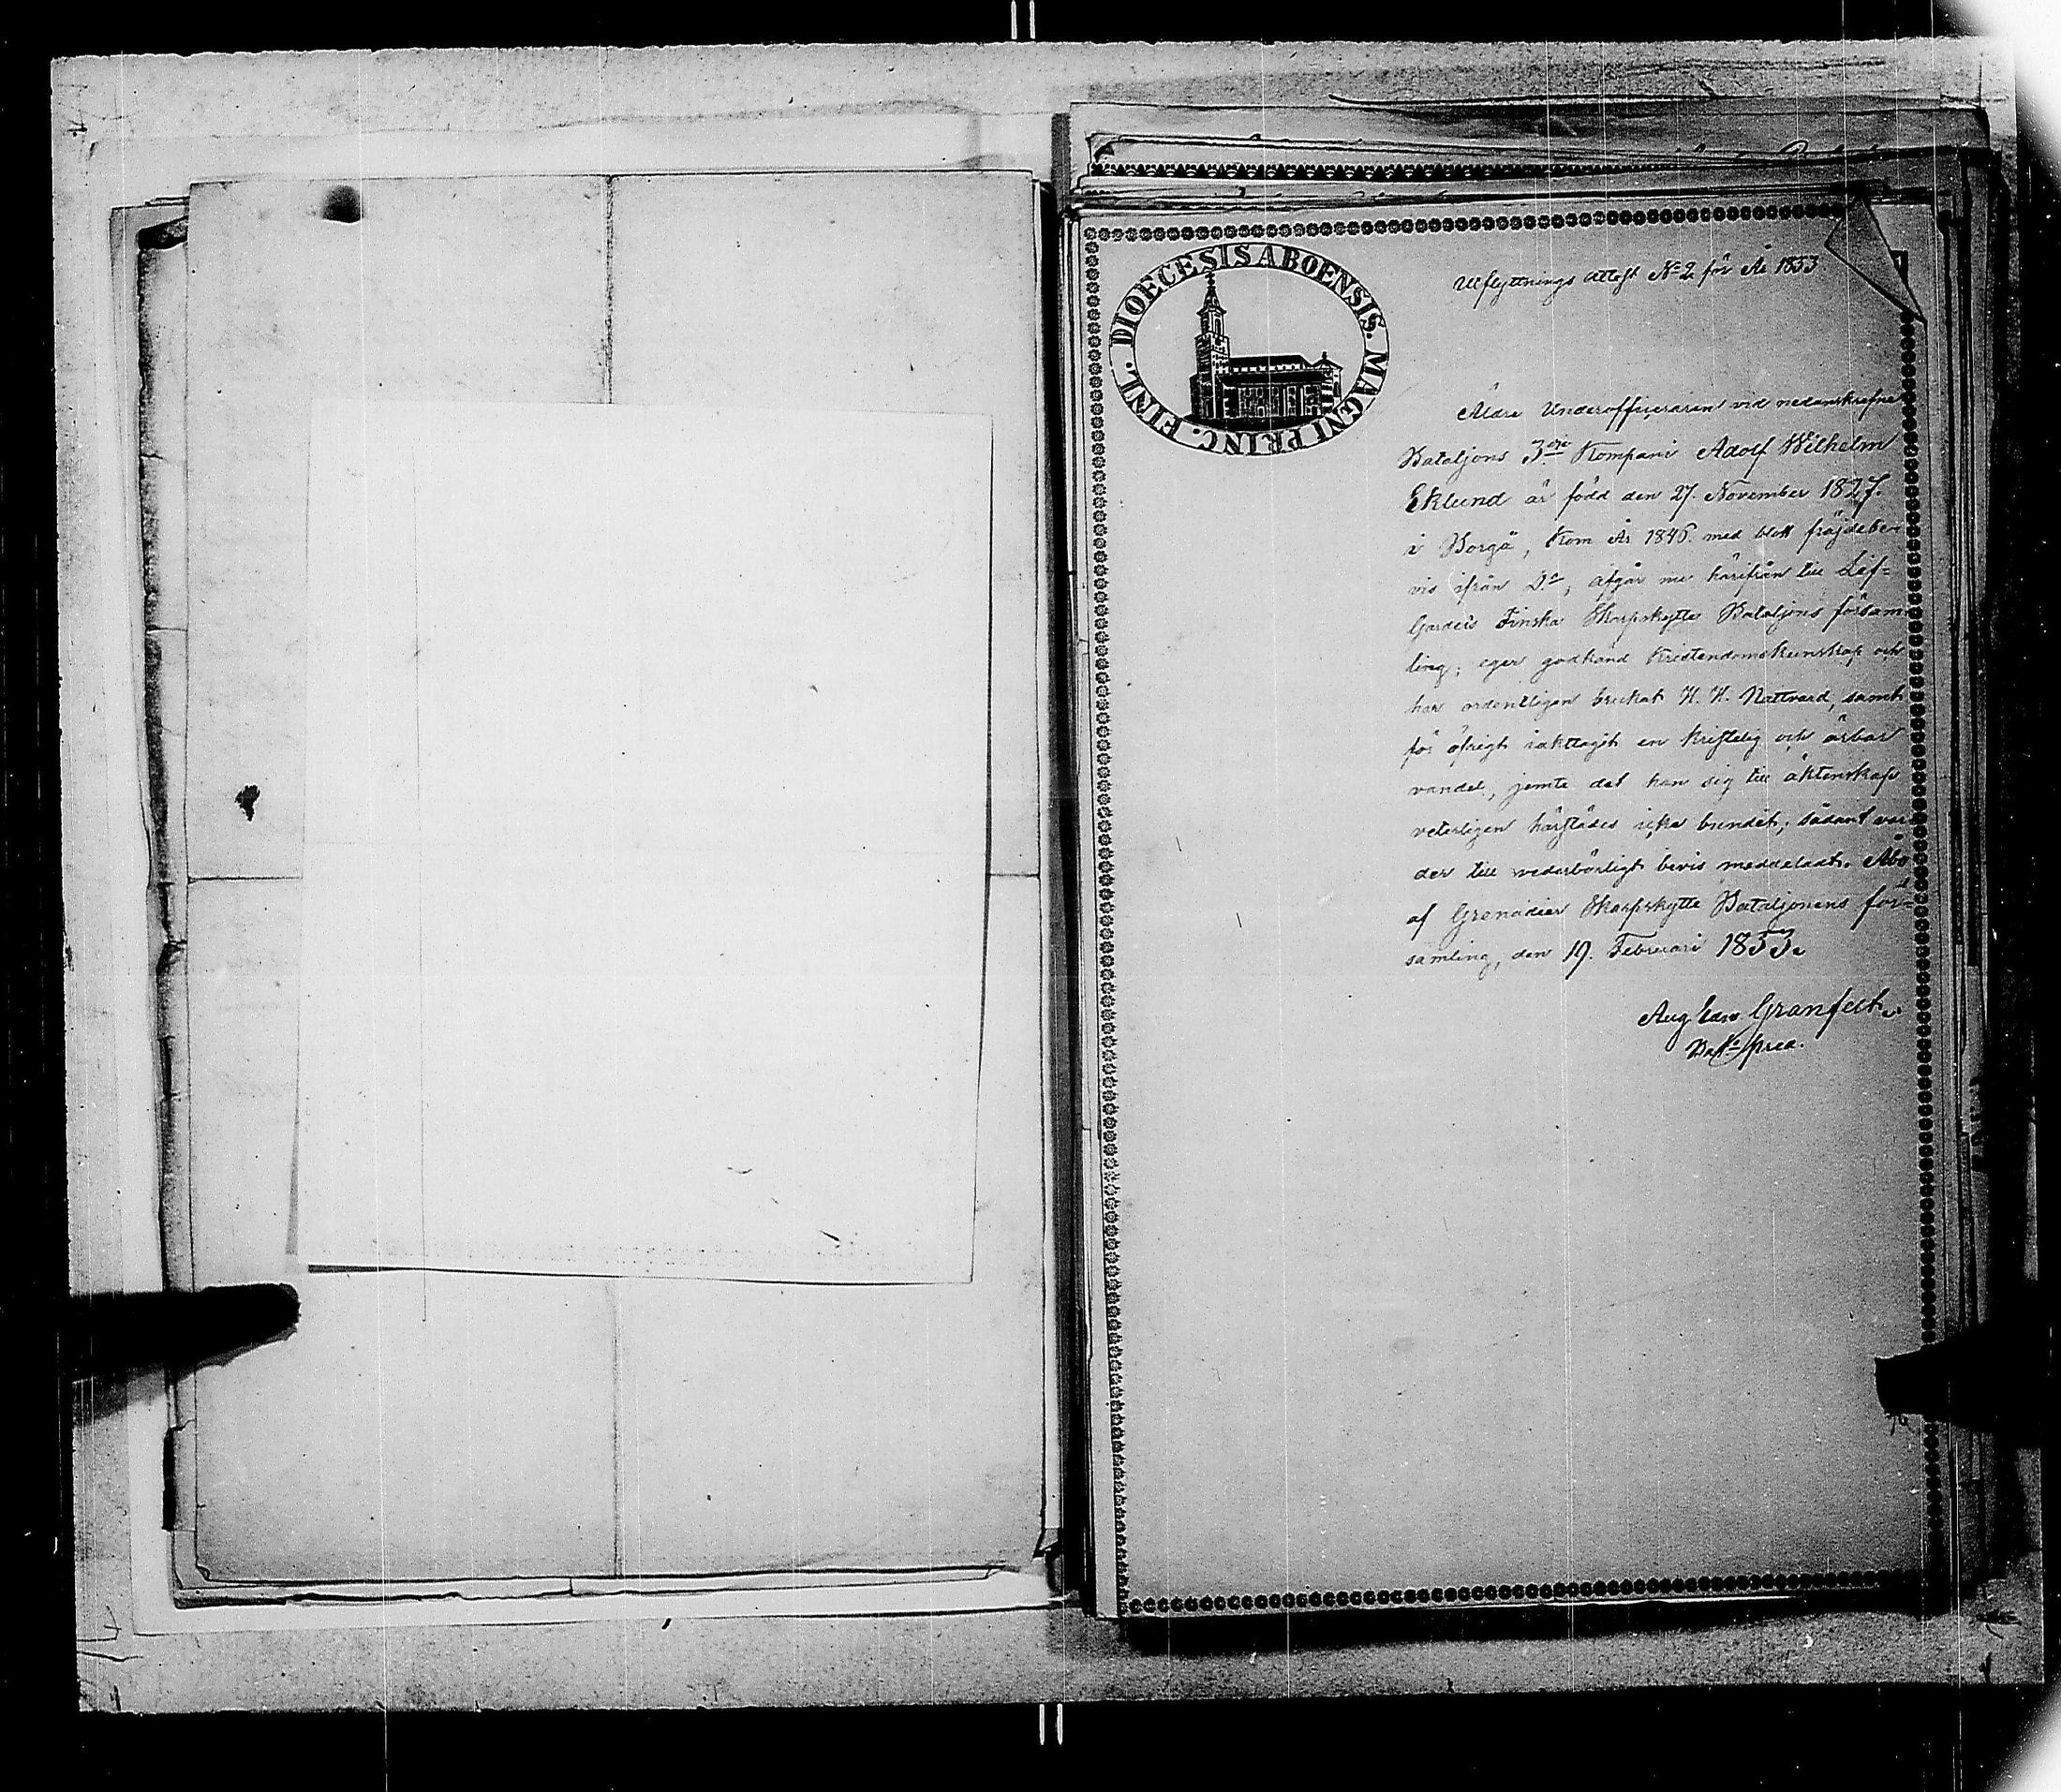 DIOECESIS ABOENSIS. MAGNI PRINC. FINL.
Utflyttnings Attest No 2 för År 1853
Äldre Underofficeraren vid nedanskrefne
Bataljons 3dje Kompani Adolf Wilhelm
Eklund är född den 27. November 1827.
i Borgå, kom År 1846. med blott fräjdebe-
vis ifrån Do, afgår nu härifrån till Lif-
Gardeis Finska Skarpskytte Bataljons försam-
ling; eger godkänd Kristendomskunskap och
har ordentligen brukat H. H. Nattvard, samt
för öfrigt iakttagit en kristelig och ärbar
vandel, jemte det han sig till äktenskap
veterligen härstädes icke bundit; sådant var-
der till vederbörligt bevis meddeladt. Åbo
af Grenadier Skarpskytte Bataljonens för-
samling, den 19. Februari 1853.
Aug Edv Granfelt.
Bats Pred.